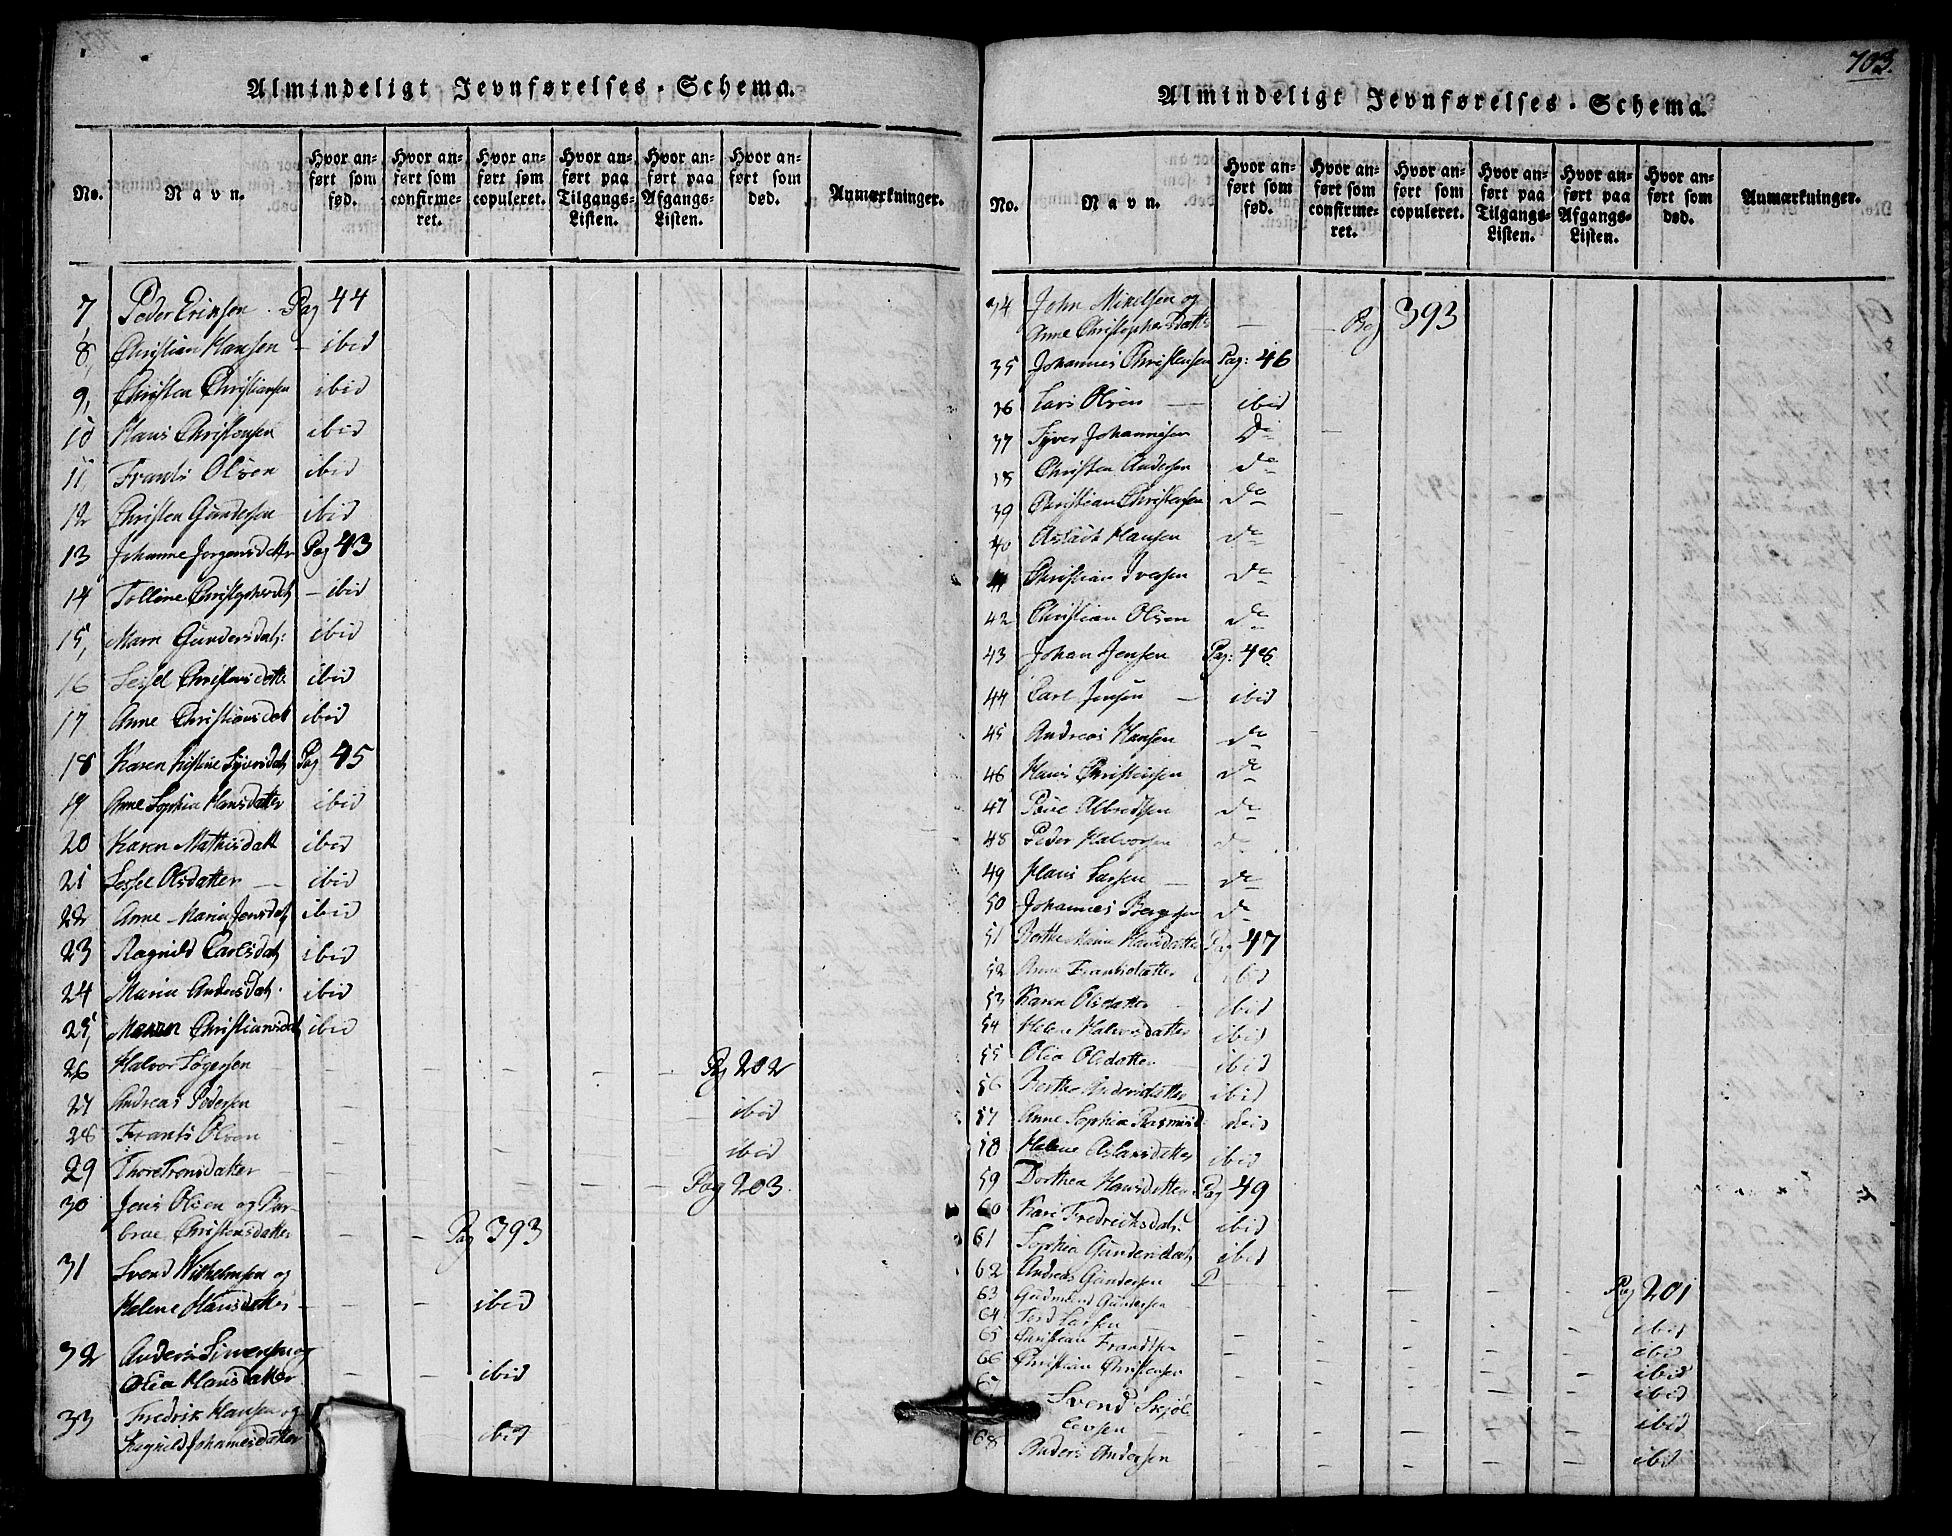 Almindeligt Jevnførelses-Schema.
No. Navn. Hvor anført som fød. Hvor anført som confirmeret. Hvor anført som copuleret. Hvor anført paa Tilgangs-Listen. Hvor anført paa Afgangs-Listen. Hvor anført som død. Anmærkninger.
7, Peder Eriksen Pag 44
8, Christian Hansen - ibid
9, Christen Christiansen ibid
10 Hans Christensen ibid
11 Frants Olsen ibid
12 Christen Gundersen ibid
13 Johanne Jorgensdattr Pag 43
14 Tolline Christophersdat - ibid
15, Maren Gundersdat: ibid
16 Sessel Christensdatt ibid
17, Anne Christiansdatt ibid
18 Karen Kistine Syversdat Pag 45
19 Anne Sophia Hansdatter ibid
20 Karen Mathisdatt ibid
21 Sessel Olsdatter - ibid
22 Anne Maria Jensdat ibid
23 Ragnild Carlsdat ibid
24 Maria Andersdat. ibid
25, Maren Christiansdat ibid
26 Halvor - - - - Pag 202
27 Andreas Pedersen - - - ibid
28 Frants Olsen - - ibid
29 Thore Tronsdatter - - - - - Pag 203.
30 Jens Olsen og Bar-
brae Christensdatter - - Pag 393
31 Svend Wilhelmsen og
Helene Hansdatter - - - ibid
32 Anders Siwersen og
Olia Hansdatter - - ibid
33 Fredrik Hansen og
Ragnild Johannesdatter ibid
703.
Almindeligt Jevnførelses-Schema.
No. Navn. Hvor anført som fød. Hvor anført som confirmeret. Hvor anført som copuleret. Hvor anført paa Tilgangs-Listen. Hvor anført paa Afgangs-Listen. Hvor anført som død. Anmærkninger.
34 John Mikelsen og
Anne Christophersdatt - - Pag 393
35 Johannes Christensen Pag: 46
36 Lars Olsen - ibid
37 Syver Johannesen Do
38 Christen Andersen do
39 Christian Christensen do
40 Aslach Hansen do
41 Christian Iversen do
42 Christian Olsen do
43 Johan Jensen Pag: 48.
44 Carl Jensen - ibid
45 Andreas Hansen do
46 Hans Christensen do
47 Povel Albredtsen do
48 Peder Halvorsen do
49 Hans Larsen - do
50 Johannes Borgersen do
51 Berthe Maria Hansdatter Pag 47
52 Anne Frantsdatter ibid
53 Karen Olsdatter - ibid
54 Helene Halvorsdatter ibid
55 Olia Olsdatter ibid
56 Berthe Andersdatter ibid
57 Anne Sophia Rasmusd. ibid
58 Helene Aslansdatter ibid
59 Dorthea Hansdatter Pag 49
60 Kari Fredriksdat. ibid
61 Sophia Gundersdat, ibid
62 Andreas Gundersen - - - - Pag 201
63 Gudmund Gundersen ibid
64 Tord Larsen - - - - ibid
65 Christian Frandtsen - - - - ibid
66 Christian Christensen - - - - ibid
67 Svend Skjøl
levsen - - - - ibid
68 Anders Andersen - - - - ibid